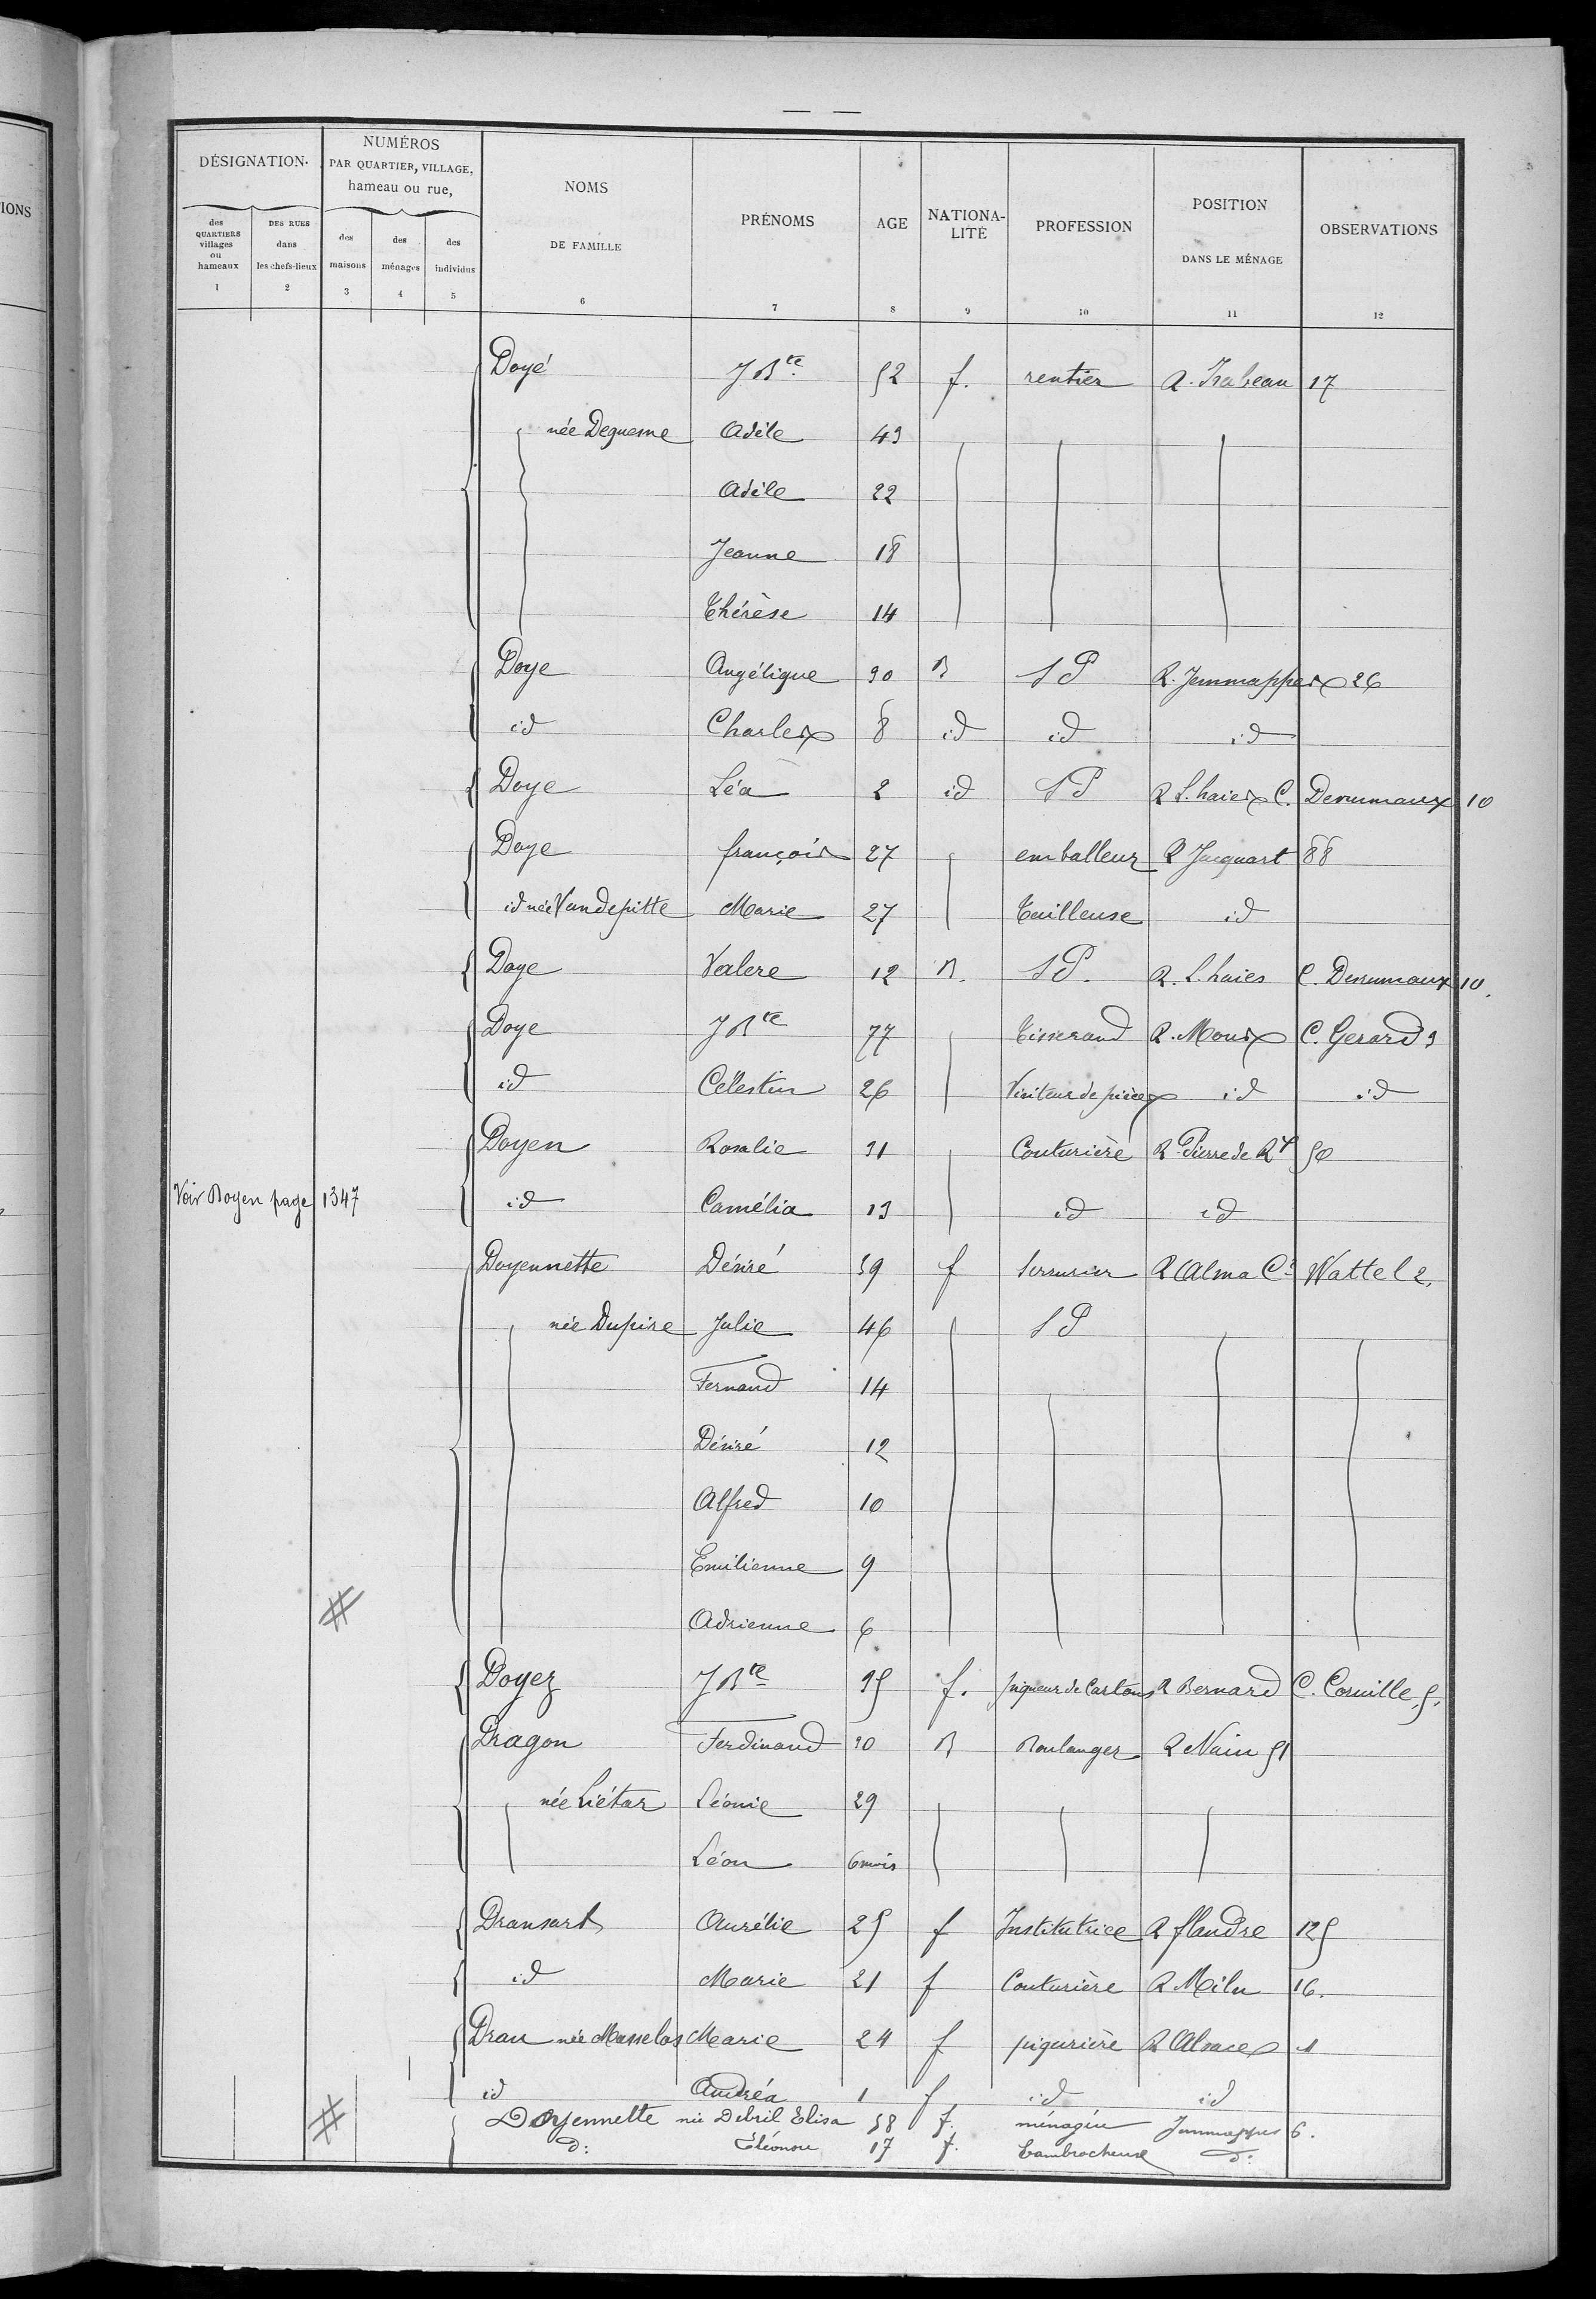 IONS
DÉSIGNATION
NUMÉROS
PAR QUARTIER, VILLAGE,
hameau ou rue,
NOMS
DE FAMILLE
PRÉNOMS
AGE
NATIONA-
LITÉ
PROFESSION
POSITION
DANS LE MÉNAGE
OBSERVATIONS
des
QUARTIERS
villages
ou
hameaux
DES RUES
dans
les chefs-lieux
des
maisons
des
ménages
des
individus
1 2 3 4 5 6 7 8 9 10 11 12
Doyé J Bte 52 f. rentier R. Isabeau 17
née Dequesne Adèle 43
Adèle 22
Jeanne 18
Thérèse 14
Doye Angélique 30 B S P R. Jemmappes 26
id Charles 8 id id id
Doye Léa 2 id S P R L. haies C. Derumaux 10
Doye françois 27 emballeur R Jacquart 88
id née Vandepitte Marie 27 Tailleuse id
Doye Valere 12 B. S P. R. L. haies C. Derumaux 10.
Doye J Bte 77 Tisserand R. Mons C. Gerard 3
id Célestin 26 Visiteur de pièces id id
Doyen Rosalie 31 Couturière R. Pierre de Rx 50
Voir Boyen page 1347 id Camélia 13 id id
Doyennette Désiré 39 f Serrurier R Alma Cr Wattel 2.
née Dupire Julie 46 S P
Fernand 14
Désiré 12
Alfred 10
Emilienne 9
Adrienne 6
#
Doyez J Bte 35 f. piqueur de Cartons R Bernard C. Cornille 5.
Dragon Ferdinand 30 B Boulanger R Nain 51
née Liétar Léonie 29
Léon 6 mois
Dransart Aurélie 25 f Institutrice R flandre 125
id Marie 21 f Couturière R Milu 16.
Drau née Masselos Marie 24 f piqurière R Alsace 1
id Andréa 1 f id id
# Doyennette née Debril Elisa 58 f. ménagère Jemmappes 6.
d: Éléonore 17 f. Cambrocheuse d: